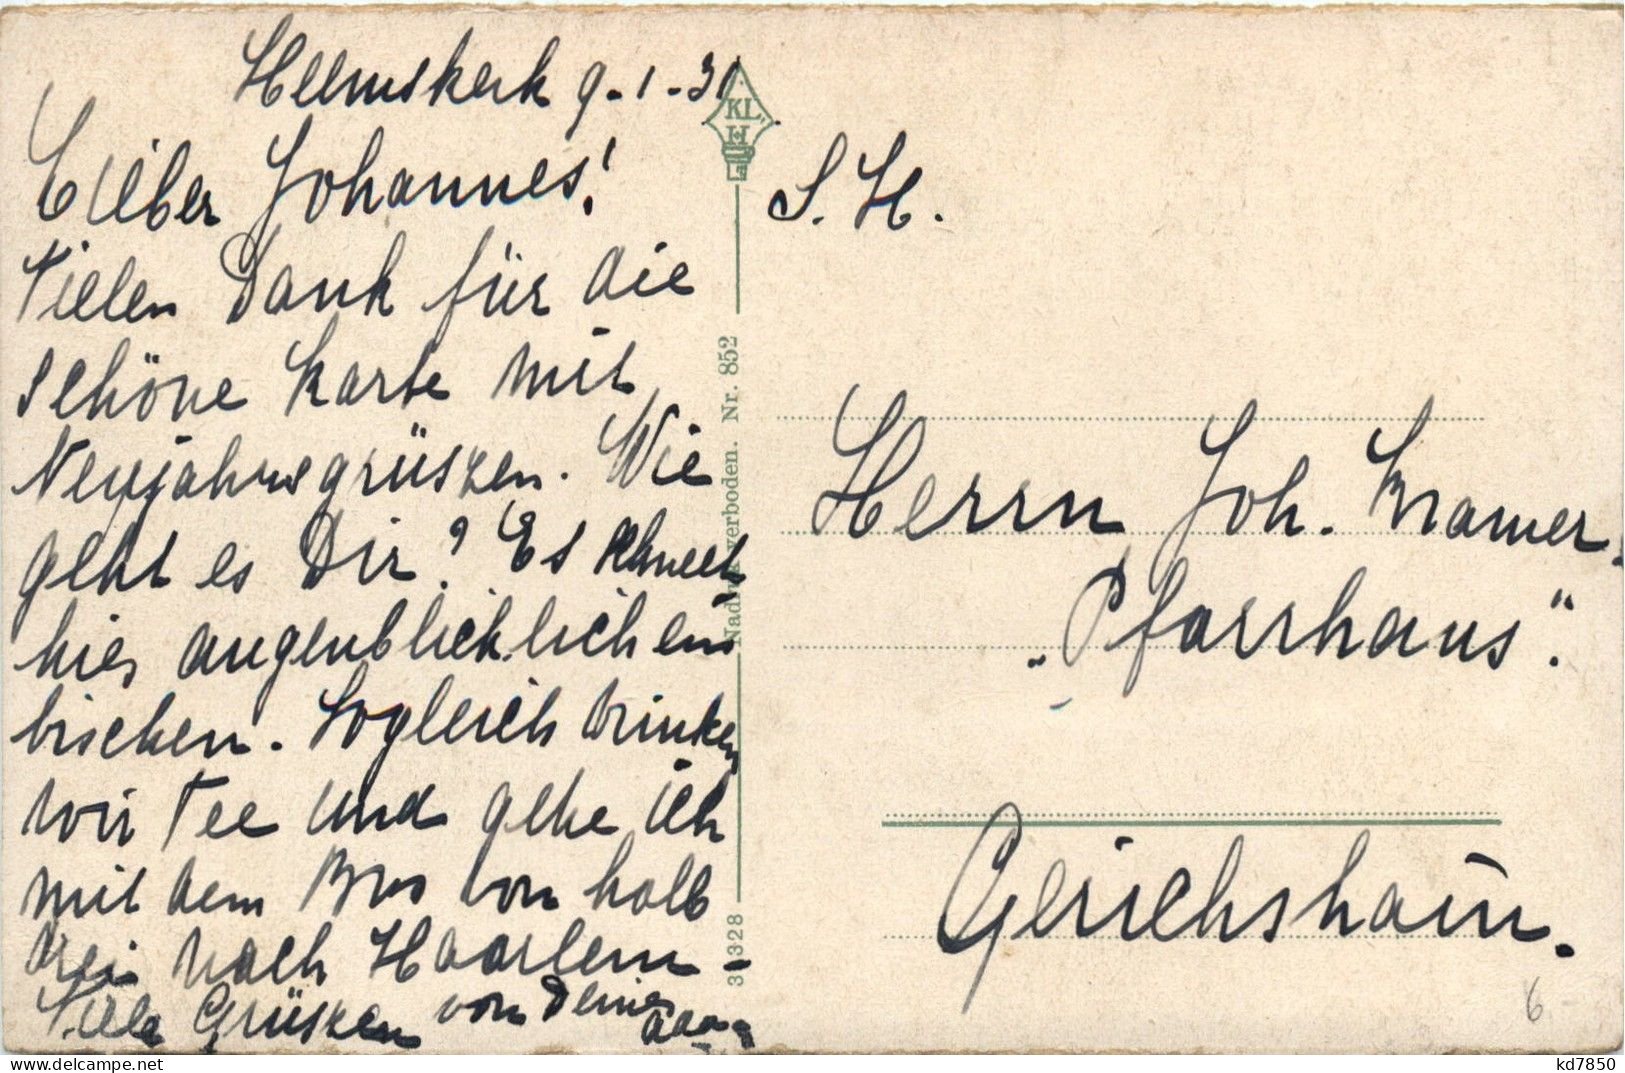 Heemskerk 9-1-31
Lieber Johannes!
Vielen Dank für die
schöne Karte mit
Neujahrsgrüszen. Wie
geht es Dir? Es schneet
hier augenblicklich ein
bischen. Sogleich trinken
wir Tee und gehe ich
mit dem Bus von halb
drei nach Haarlem -
Viele Grüszen von Deine
KL.
H
Nadruk verboden. Nr. 852
328
S. H.
Herrn Joh. Kramer.
„Pfarrhaus".
Gerichshain.
6
kd7850